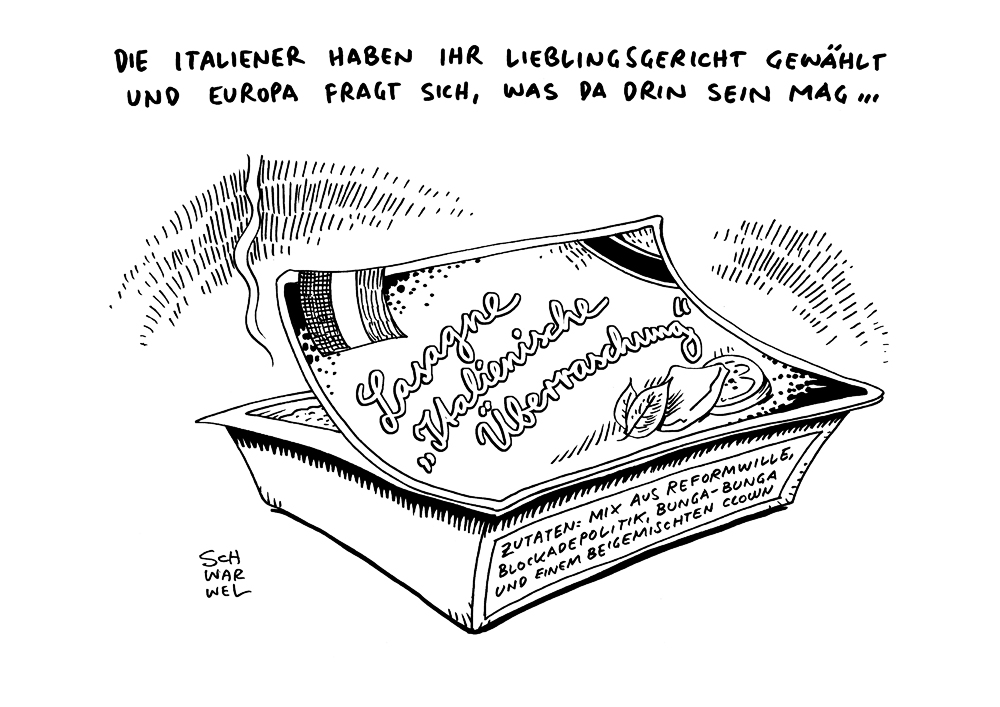 DIE ITALIENER HABEN IHR LIEBLINGSGERICHT GEWÄHLT
UND EUROPA FRAGT SICH, WAS DA DRIN SEIN MAG...
Lasagne
„Italienische
Überraschung“
ZUTATEN: MIX AUS REFORMWILLE,
BLOCKADEPOLITIK, BUNGA-BUNGA
UND EINEM BEIGEMISCHTEN CLOWN
SCH
WAR
WEL